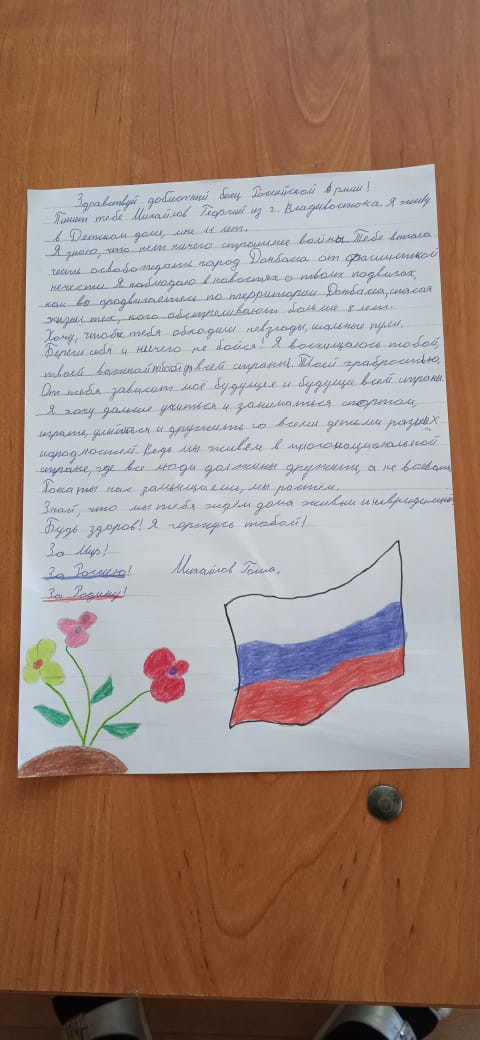 Здравствуй доблестный боец Российской Армии!
Пишет тебе Михайлов Георгий из г. Владивостока. Я живу
в Детском доме, мне 11 лет.
Я знаю, что нет ничего страшнее войны. Тебе выпала
честь освобождать город Донбасса от фашистской
нечести. Я наблюдаю в новостях о твоих подвигах,
как вы продвигаетесь по территории Донбасса, спасая
жизни тех, кого обстреливают больше 8 лет.
Хочу, чтобы тебя обходили невзгоды, шальные пули.
Береги себя и ничего не бойся! Я восхищаюсь тобой,
твоей важной для всей страны! Твоей храбростью,
От тебя зависит моё будущее и будущее всей страны.
Я хочу дальше учиться и заниматься спортом,
играть, улыбаться и дружить со всеми детьми разных
народностей. Ведь мы живём в многонациональной
стране, где все люди должны дружить, а не воевать.
Пока ты нас защищаешь, мы растём.
Знай, что мы тебя ждём дома живым и невредимым.
Будь здоров! Я горжусь тобой!
За Мир!
За Россию! Михайлов Гоша.
За Родину!